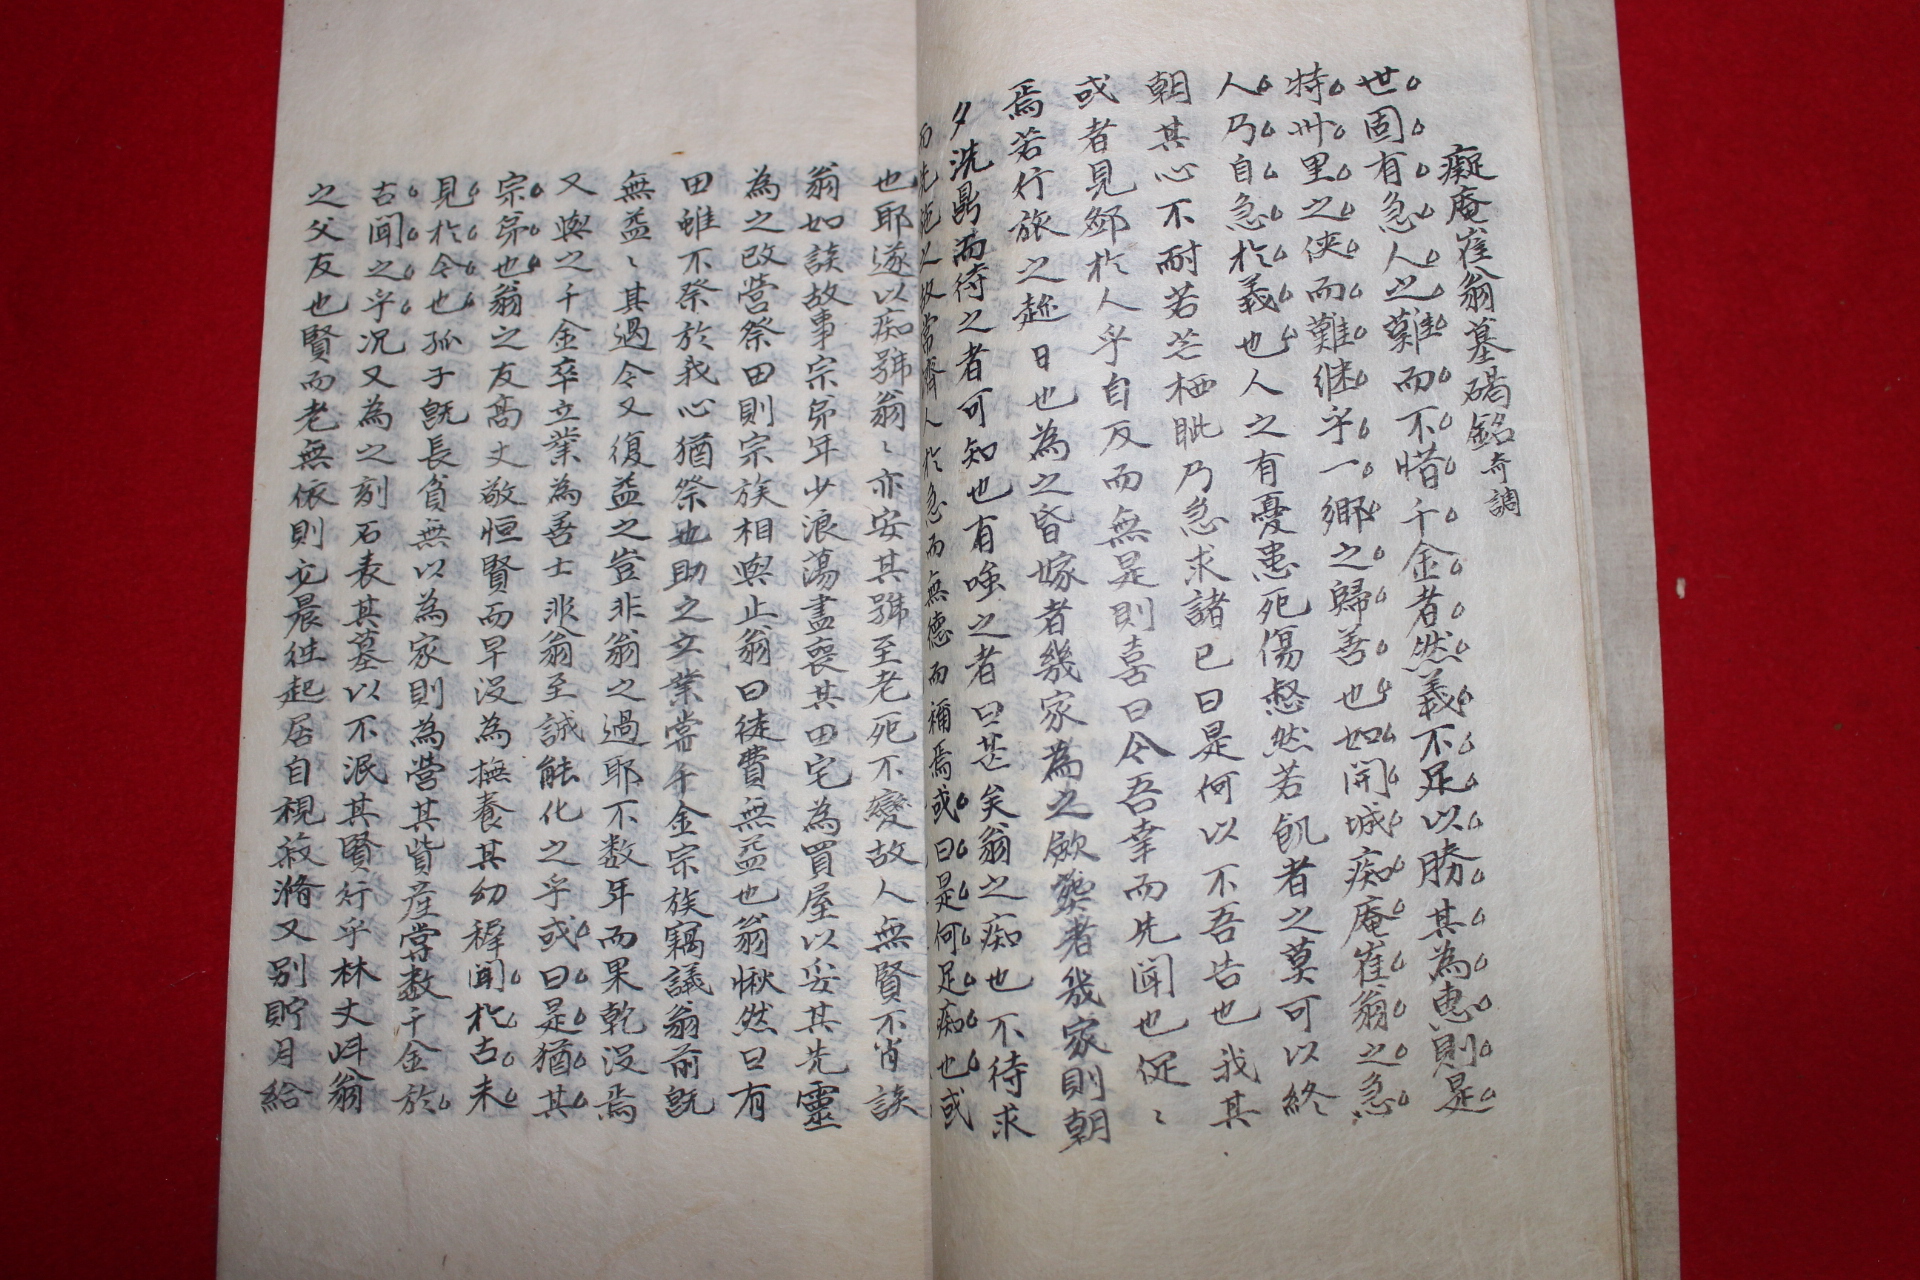 癡庵崔翁墓碣銘 奇調
世固有急人之難而不惜千金者然義不足以勝其為惠則是
特卅里之俠而難継乎一鄉之歸善也如開城痴庵崔翁之急
人乃自急於義也人之有憂患死傷愁然若飢者之莫可以終
朝其心不耐若芒栖眦乃急求諸已曰是何以不吾告也我其
或者見鄙於人乎自反而無是則喜曰今吾幸而先闻也促〻
焉若行旅之趂日也為之昏嫁者幾家為之歛葬者幾家則朝
夕洗鼎而待之者可知也有嗤之者曰甚矣翁之痴也不待求
而先施以故常齎人於急而無德而稱焉或曰是何足痴也或
也耶遂以痴號翁〻亦安其號至老死不變故人無賢不肖談
翁如談故事宗弟年少浪蕩盡喪其田宅為買屋以妥其先靈
為之改營祭田則宗族相與止翁曰徒費無益也翁愀然曰有
田雖不祭於我心猶祭也助之立業常千金宗族竊議翁前旣
無益〻其過今又復益之豈非翁之過耶不数年而果乾沒焉
又與之千金卒立業為善士非翁至誠能化之乎或曰是猶其
宗弟也翁之友髙丈敬恒賢而早沒為撫養其幼穉闻於古未
見於今也孤子旣長貧無以為家則為營其貲産常数千金於
古闻之乎况又為之刻石表其墓以不泯其賢行乎林丈㟁翁
之父友也賢而老無依則定晨徃起居自視菽滫又别貯月給